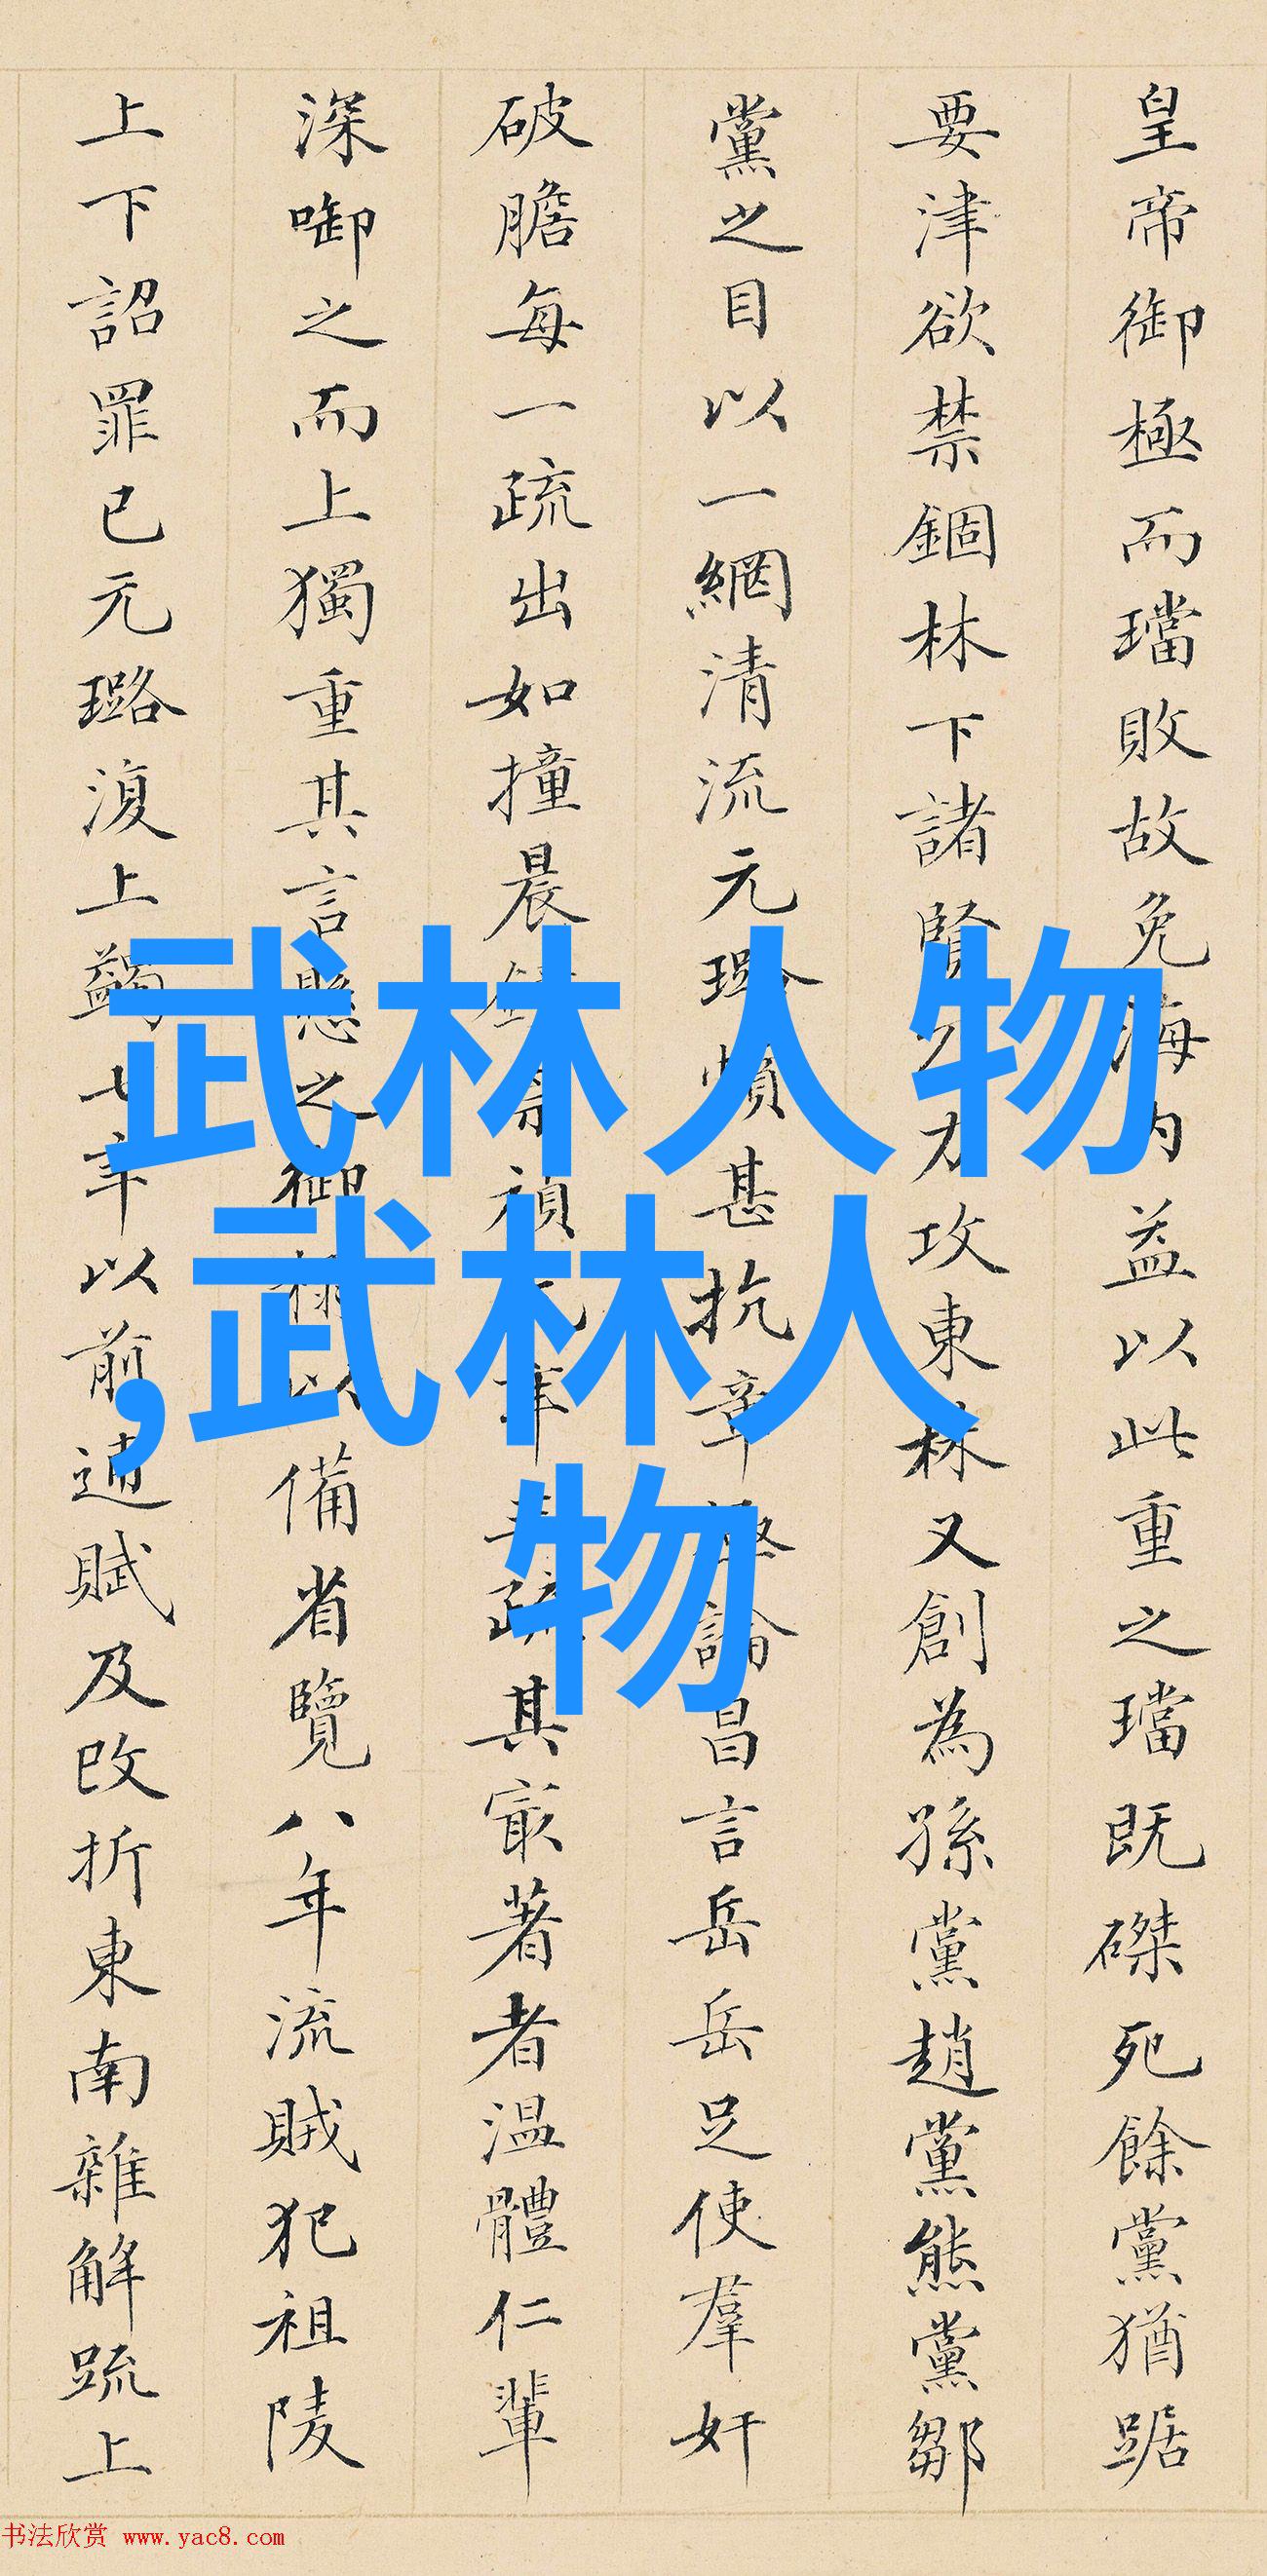 皇帝御極而璫敗故免海内益以此重之璫既磔死餘黨猶踞
要津欲禁錮林下諸賢力攻東林又創為孫黨趙黨熊黨鄒
黨之目以一網清流元璐憤甚抗章論昌言岳岳足使羣奸
破膽每一疏出如撞晨禎年疏其最著者溫體仁輩
深啣之而上獨重其言懸之御以備省覽八年流賊犯祖陵
上下詔罪已元璐復上蠲七年以前逋賦及改折東南雜解疏上
武林人物
,武林人
物
书法欣赏 www.yac8.com